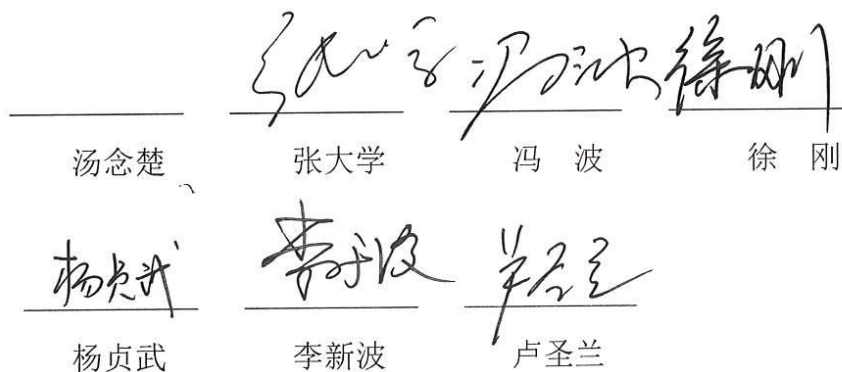 张大学 冯波 徐刚
汤念楚 张大学 冯 波 徐 刚
杨贞武 李新波
杨贞武 李新波 卢圣兰